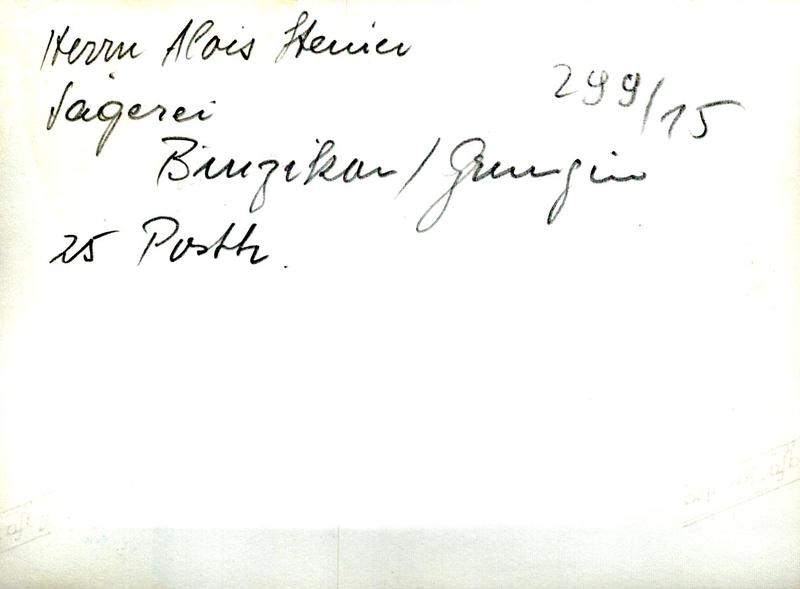 Herrn Alois
Sägerei
299/15
Binzikon / Grüningen
25 Postk.